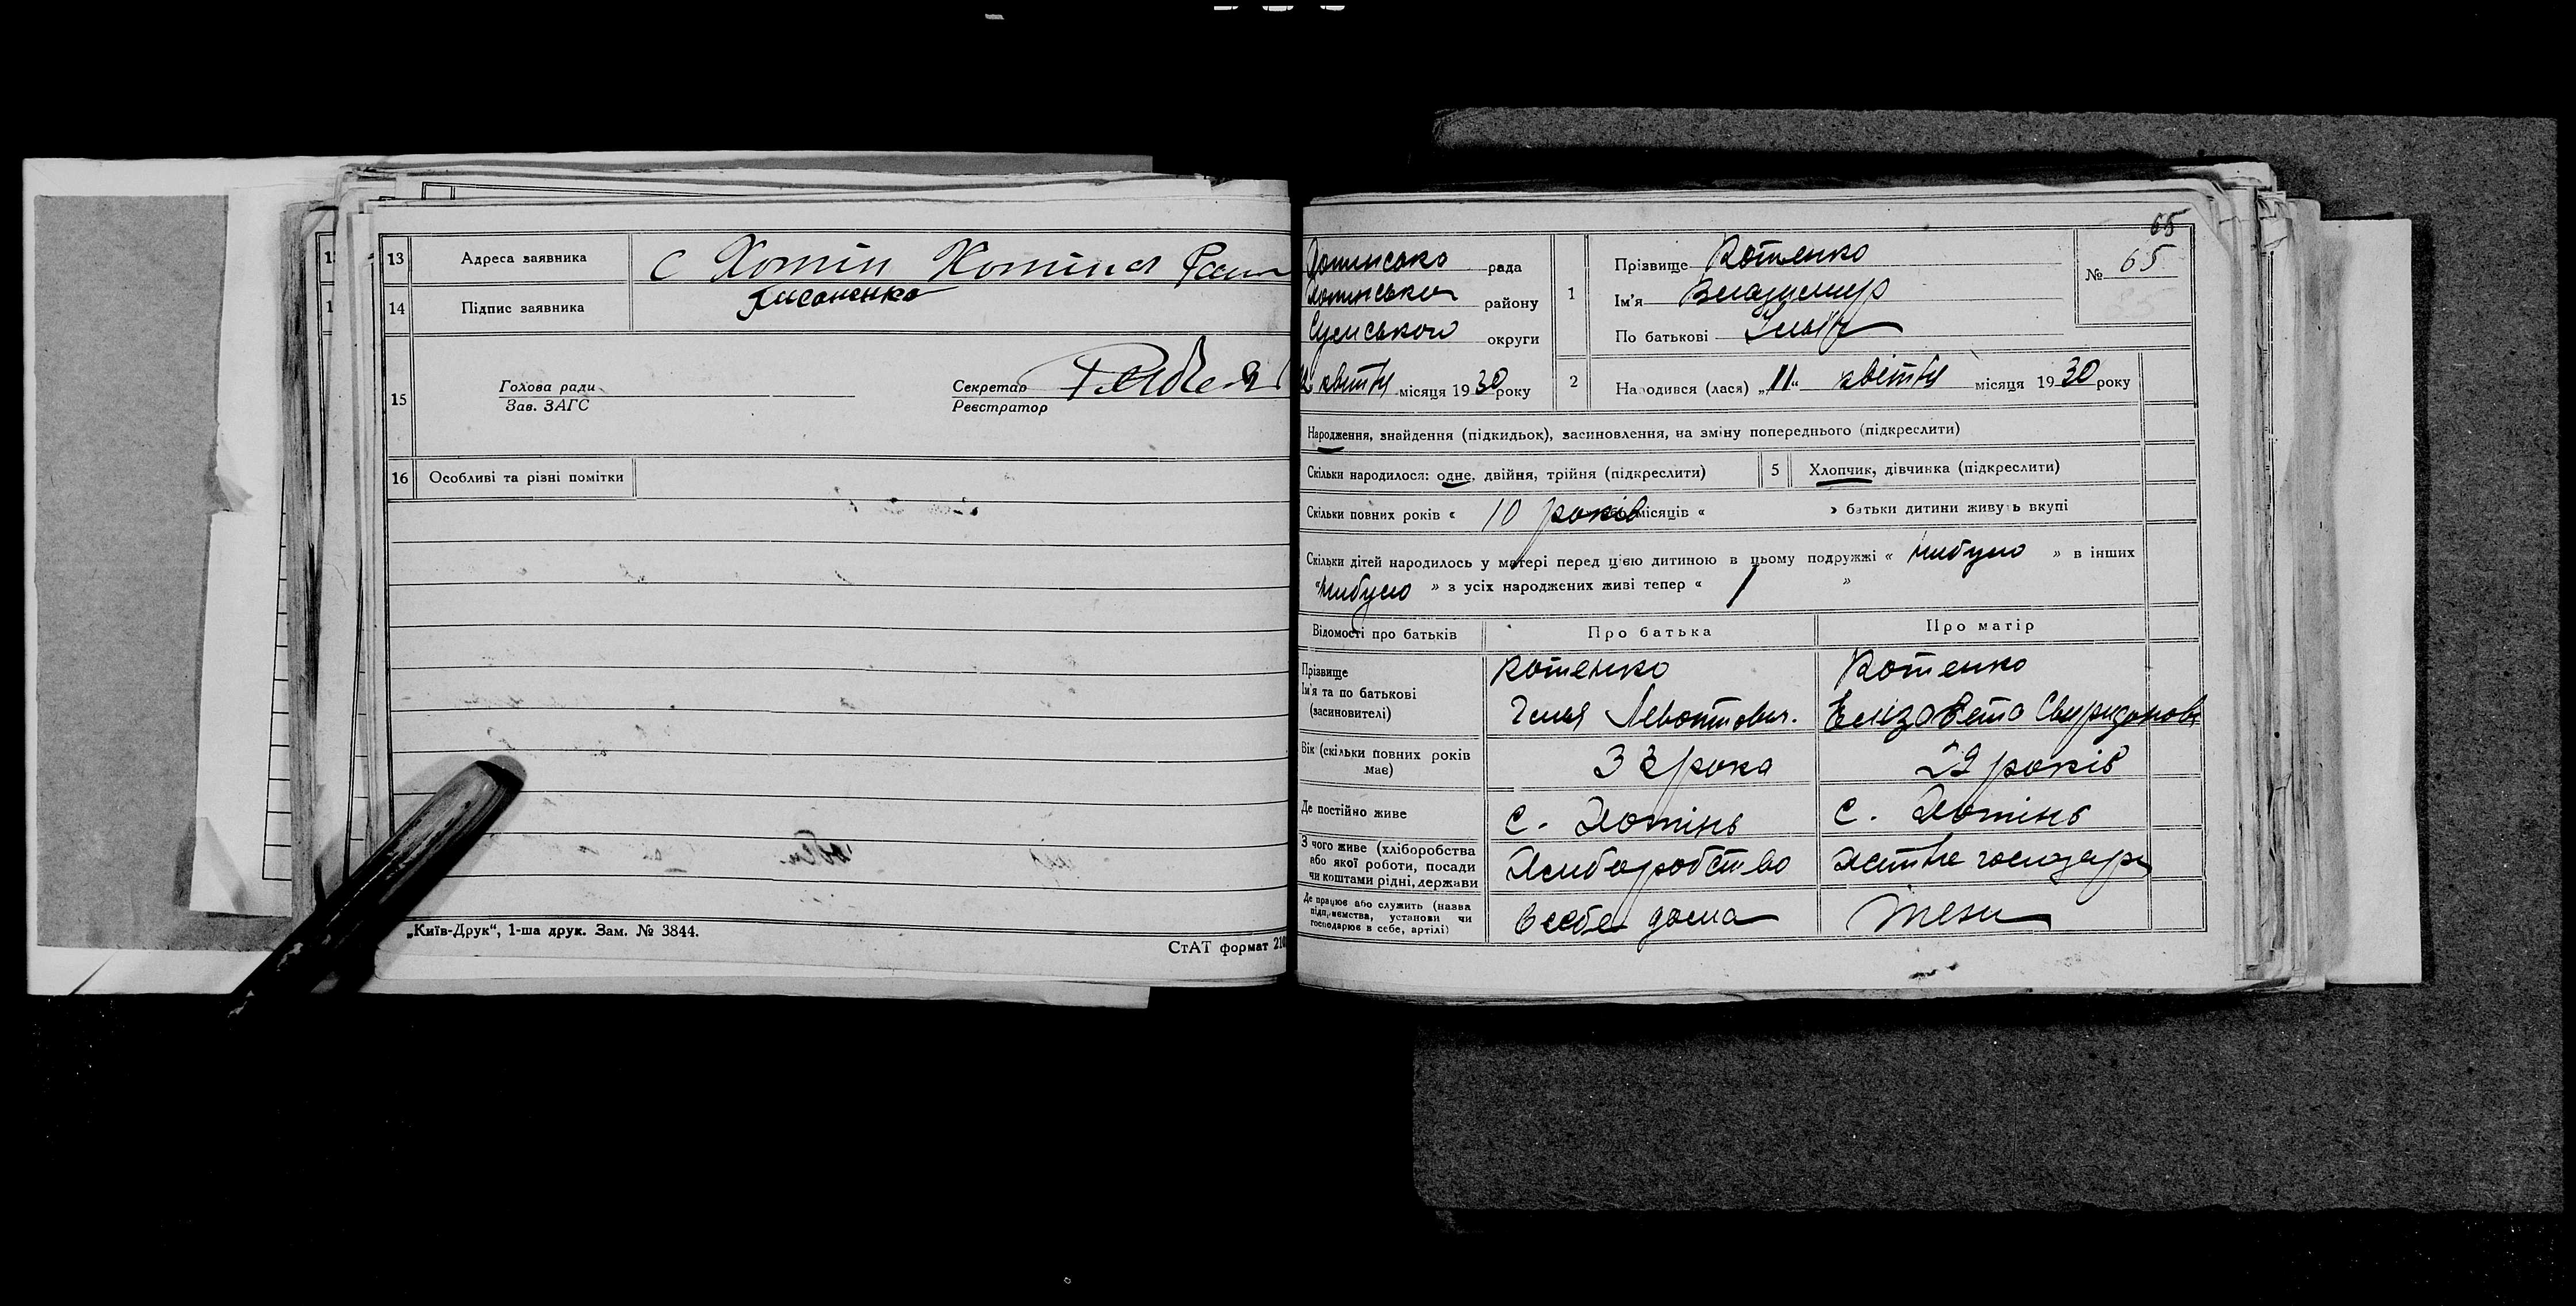 13 Адреса заявника с Хотін Хотінсл Рам
14 Підпис заявника Писаненко
15 Голова ради Секретар
Зав. ЗАГС Реєстратор
16 Особливі та різні помітки
„Київ-Друк“, 1-ша друк. Зам. № 3844.
СтАТ формат 210
65
Хотинсько рада
Хотинськи району
Сумського округи
квітня місяця 1930 року
1 Прізвище Котенко
Ім'я Владимир
По батькові Ільїч
№ 65
2 Народився (лася) „11“ квітня місяця 1930 року
Народження, знайдення (підкидьок), засиновлення, на зміну попереднього (підкреслити)
Скільки народилося: одне, двійня, трійня (підкреслити) 5 Хлопчик, дівчинка (підкреслити)
Скільки повних років « 10 років або місяців « » батьки дитини живуть вкупі
Скільки дітей народилось у матері перед цією дитиною в цьому подружжі « небуло » в інших
« небуло » з усіх народжених живі тепер « / »
Відомості про батьків Про батька Про матір
Прізвище Котенко Котенко
Ім'я та по батькові
(засиновителі) Илья Левонтович. Елізавета Свиридонов
Вік (скільки повних років має) 32 рока 29 років
Де постійно живе с. Хотінь с. Хотінь
З чого живе (хліборобства
або якої роботи, посади
чи коштами рідні, держави Хлиборобство
Де працює або служить (назва
підприємства, установи чи
господарює в себе, артілі) в себе дома теж